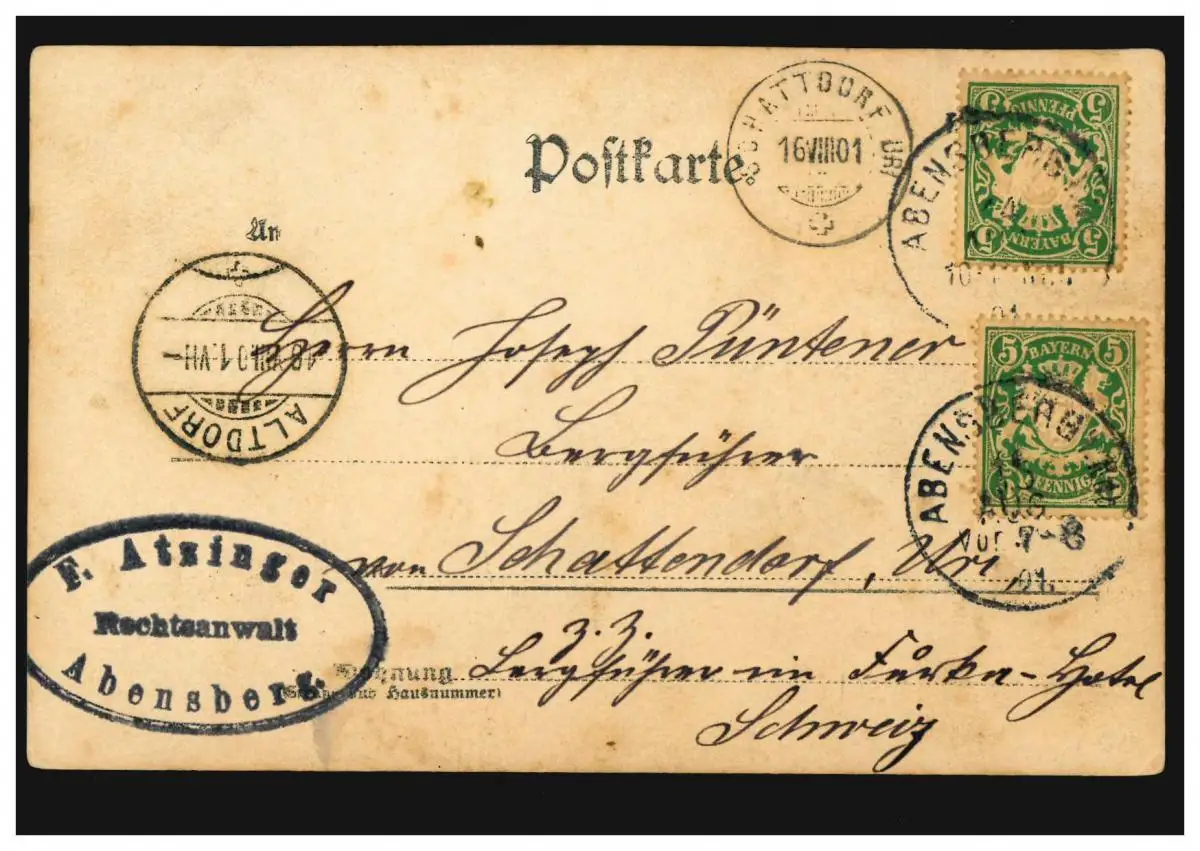 Postkarte
SCHATTDORF URI
16 VIII 01
5 5
PFENNIG
BAYERN
5 5
ABENSBERG
10
01
An
ALTDORF
VIII.01.VII
Herrn Joseph Püntener
5 5
BAYERN
PFENNIG
ABENSBERG
AUG
Vor 7-8
01.
Bergführer
von Schattendorf, Uri,
F. Atzinger
Rechtsanwalt
Abensberg.
z. Z.
Wohnung Bergführer im Furka-Hotel
(Straße und Hausnummer)
Schweiz